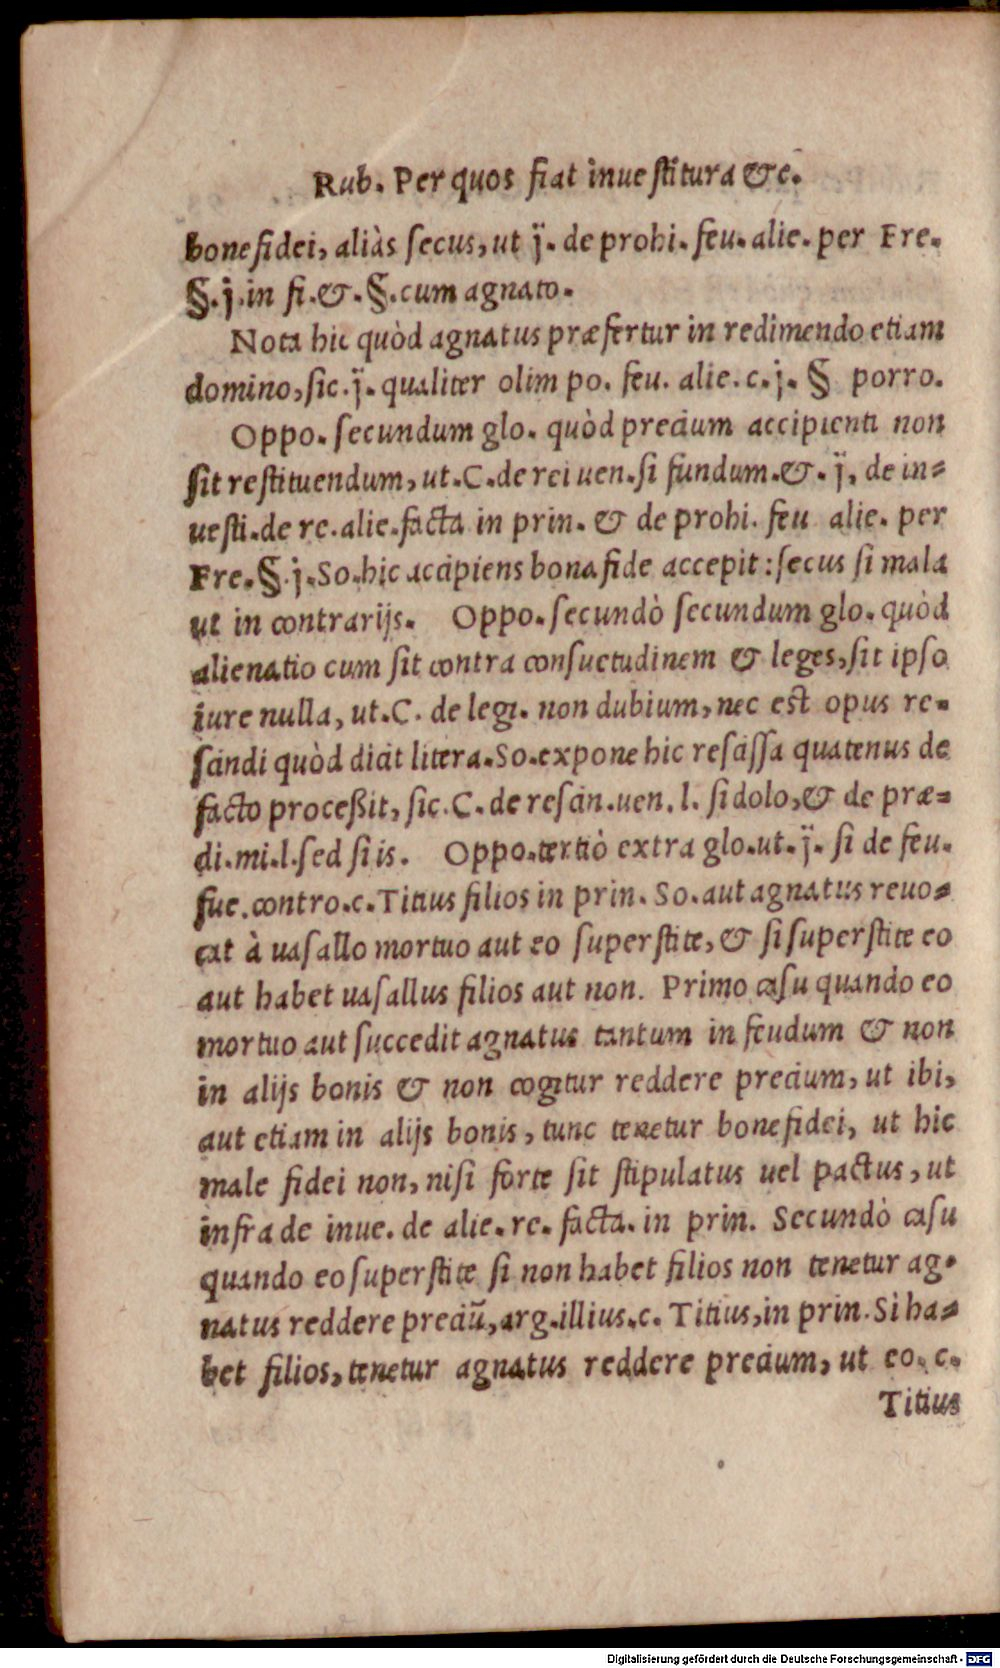 Rub. Per quos fiat inuestitura &c.
bonefidei, aliàs secus, ut j̈. de prohi. feu. alie. per Fre.
§. j. in fi. &. §. cum agnato.
Nota hic quòd agnatus præfertur in redimendo etiam
domino, sic. j̈. qualiter olim po. feu. alie. c. j. § porro.
Oppo. secundum glo. quòd precium accipienti non
sit restituendum, ut. C. de rei uen. si fundum. &. j̈. de in=
uesti. de re. alie. facta in prin. & de prohi. feu alie. per
Fre. §. j. So. hic accipiens bona fide accepit: secus si mala
ut in contrarijs. Oppo. secundò secundum glo. quòd
alienatio cum sit contra consuetudinem & leges, sit ipso
iure nulla, ut. C. de legi. non dubium, nec est opus re=
scindi quòd dicit litera. So. expone hic rescissa quatenus de
facto proceßit, sic. C. de rescin. uen. l. si dolo, & de præ=
di. mi. l. sed si is. Oppo. tertiò extra glo. ut. j̈. si de feu.
fue. contro. c. Titius filios in prin. So. aut agnatus reuo=
cat à uasallo mortuo aut eo superstite, & si superstite eo
aut habet uasallus filios aut non. Primo casu quando eo
mortuo aut succedit agnatus tantum in feudum & non
in alijs bonis & non cogitur reddere precium, ut ibi,
aut etiam in alijs bonis, tunc tenetur bonefidei, ut hic
male fidei non, nisi forte sit stipulatus uel pactus, ut
infra de inue. de alie. re. facta. in prin. Secundò casu
quando eo superstite si non habet filios non tenetur ag=
natus reddere preciũ, arg. illius. c. Titius, in prin. Si ha=
bet filios, tenetur agnatus reddere precium, ut eo. c.
Titius
Digitalisierung gefördert durch die Deutsche Forschungsgemeinschaft - DFG